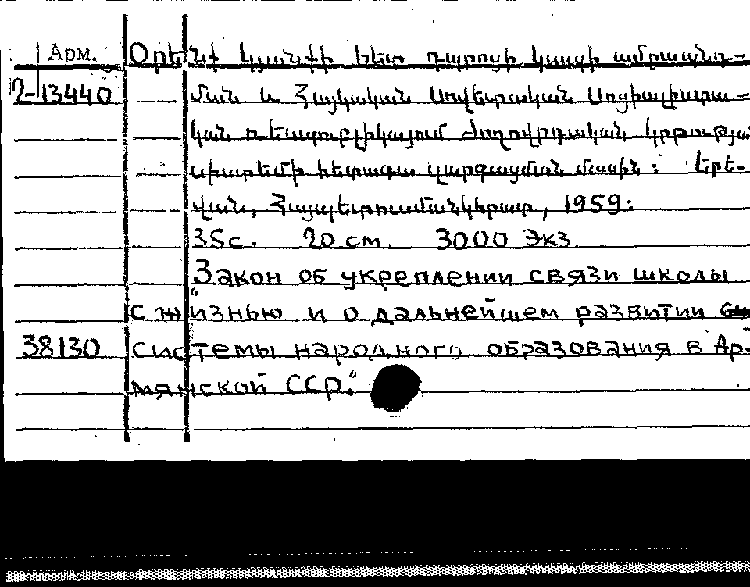 Арм. Օրենք կյանքի հետ դպրոցի կապի ամրապնդ-
2-13440 ման և Հայկական Սովետական Սոցիալիստա-
կան Ռեսպուբլիկայում ժողովրդական կրթությա
սիստեմի հետագա զարգացման մասին: Երե-
վան, Հայպետուսմանկհրատ, 1959:
35с. 20 см. 3000 Экз
"Закон об укреплении связи школы
с жизнью и о дальнейшем развитии
38130 системы народного образования в Ар-
мянской ССР."